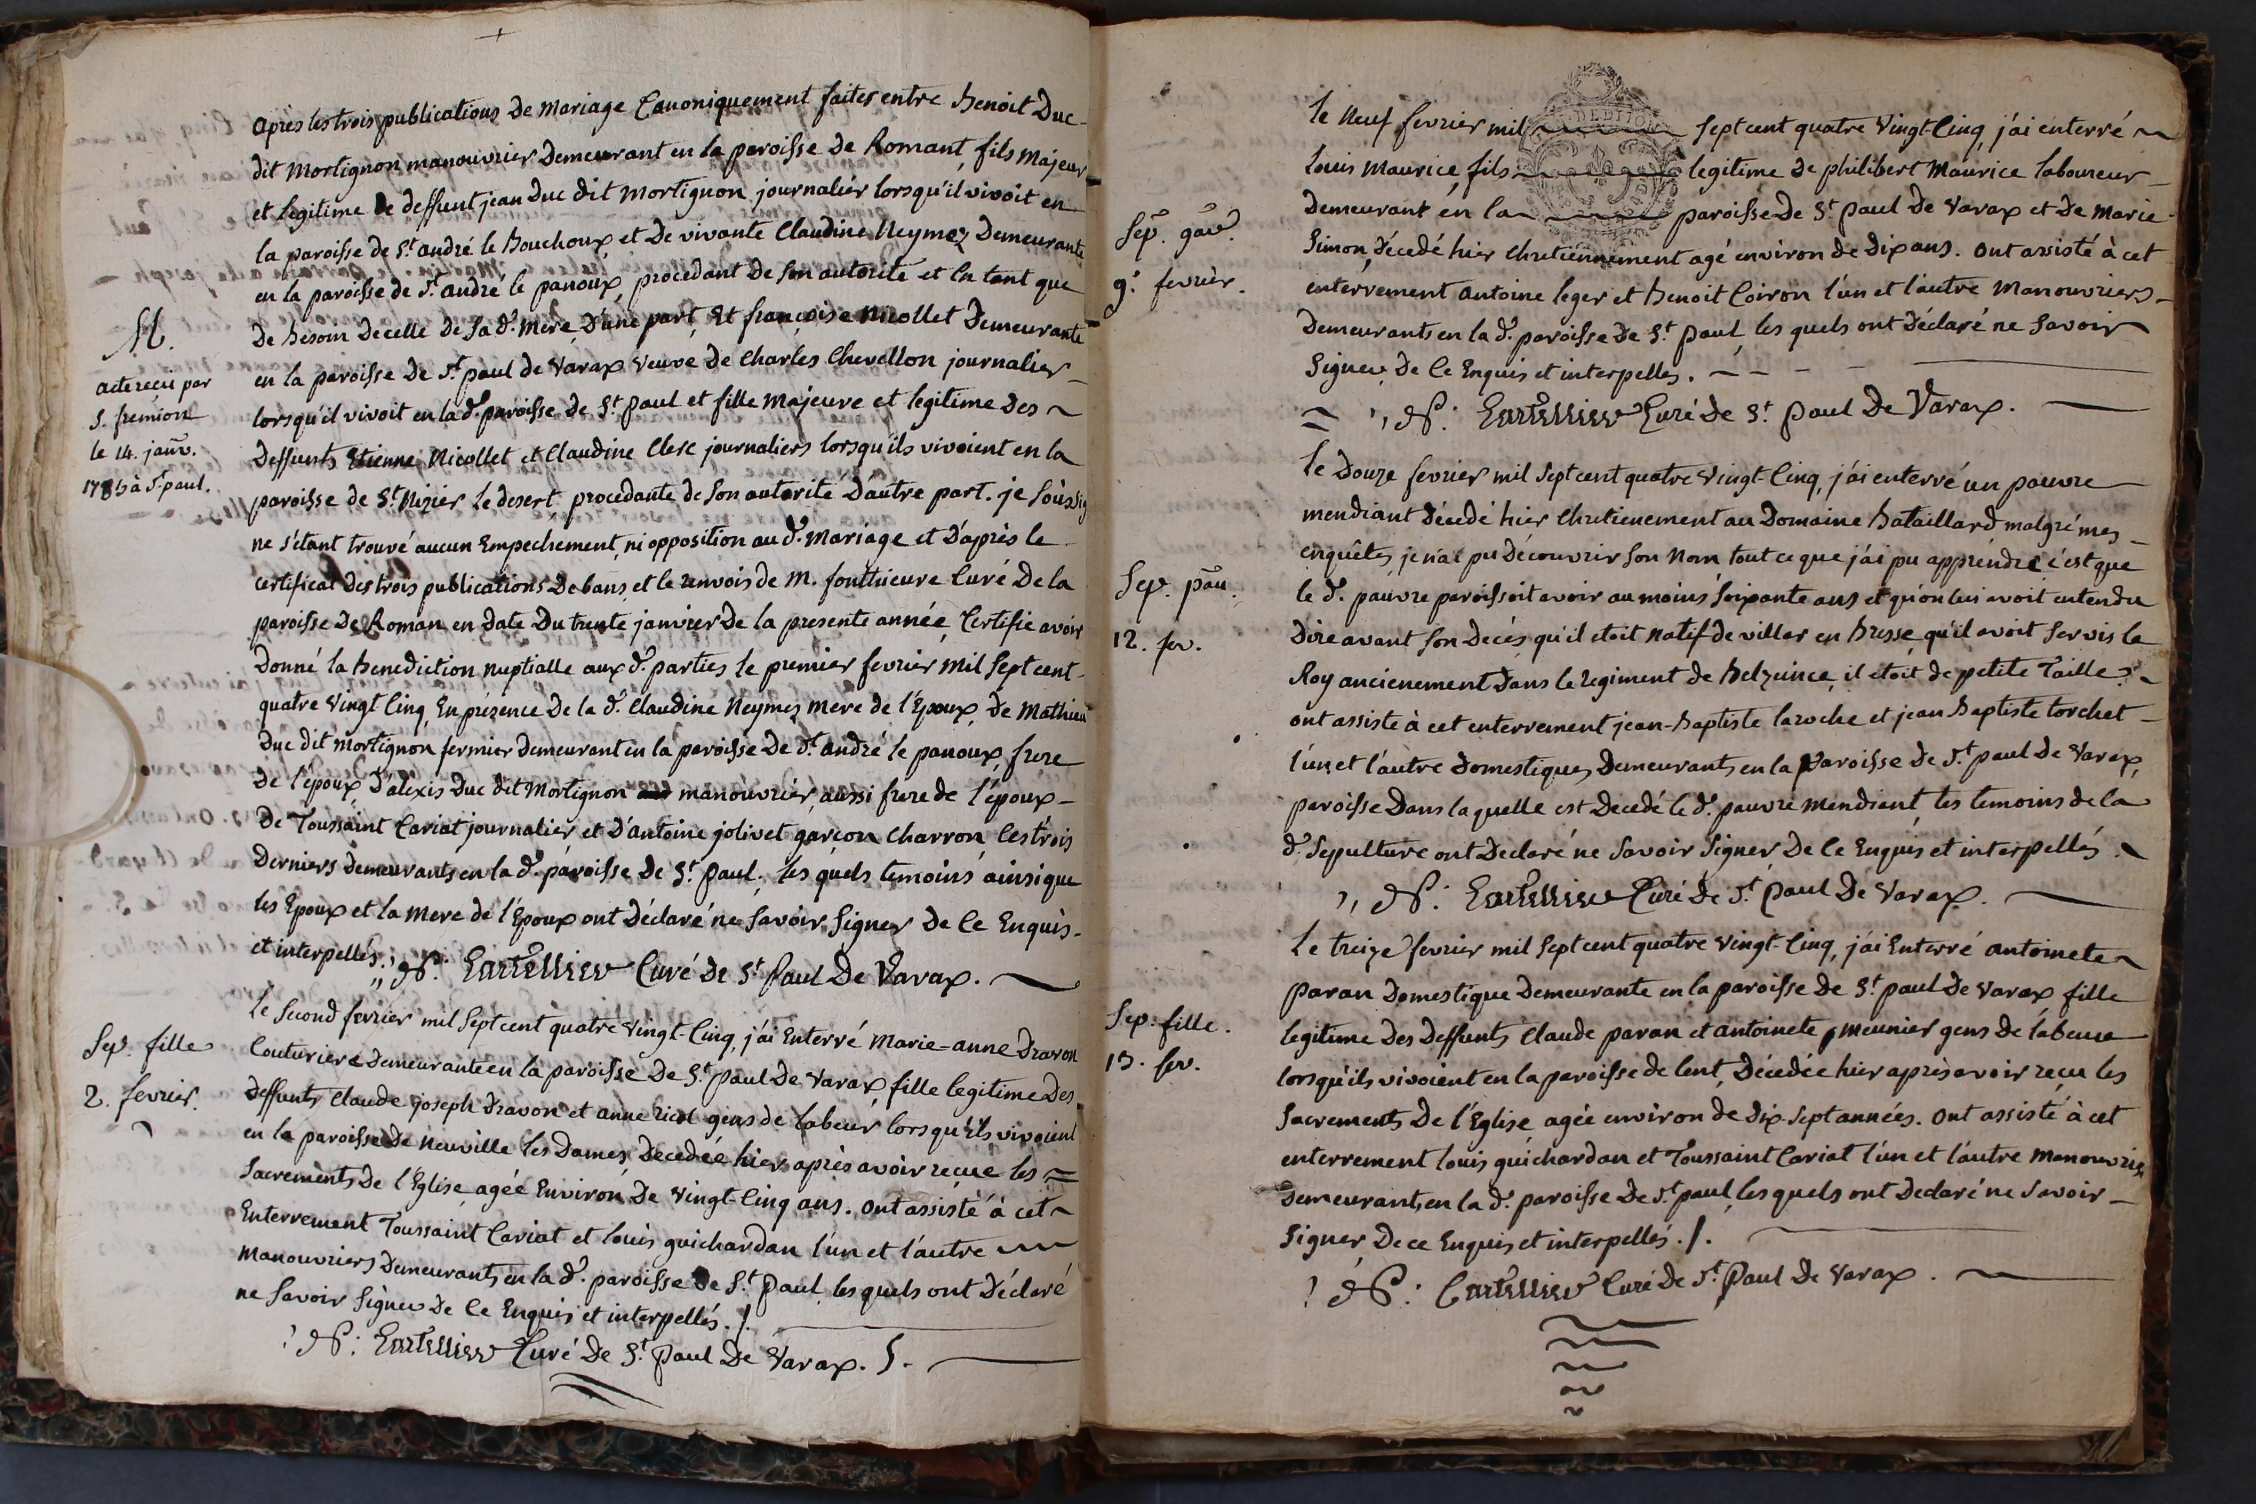 apres les trois publications de mariage Canoniquement faites entre Benoit Duc
dit Mortignon manouvrier demeurant en la paroisse de Romant fils majeur
et legitime de deffunt jean Duc dit Mortignon journalier lorsqu'il vivoit en
la paroisse de St. andré le Bouchoux et de vivante Claudine Neymoz Demeurante
en la paroisse de St. andré le panoux, procedant de son autorité et En tant que
de besoin de celle de sa d. mere, D'une part, Et françoise Nicollet Demeurante
en la paroisse de St. paul de Varax veuve de Charles Chevellon journalier
lorsqu'il vivoit en la d. paroisse de St. paul et fille majeure et legitime des
Deffunts Etienne Nicollet et Claudine Clerc journaliers lorsqu'ils vivoient en la
paroisse de St. Nizier le desert, procedante de son autorité D'autre part. je soussig
ne s'étant trouvé aucun Empechement, ni opposition au d. mariage et D'après le
certificat des trois publications de bans, et le renvois de M. fonthieure Curé De la
paroisse de Roman en date Du trente janvier de la presente année, Certifie avoir
Donné la Benediction nuptialle aux d. parties le premier fevrier mil sept cent
quatre vingt Cinq, En présence De la d. Claudine Neymoz mere de l'Epoux, de Mathieu
Duc dit Mortignon fermier demeurant en la paroisse de St. andré le panoux, frere
De l'époux, D'alexis Duc dit Mortignon manouvrier aussi frere de l'époux
de Toussaint Cariat journalier et D'antoine jolivet garçon Charron, Ces trois
Derniers demeurants en la d. paroisse de St. paul; les quels temoins ainsi que
les Epoux et la Mere de l'Epoux ont Déclaré ne savoir signer de Ce Enquis
et interpellés,
Curé de St. Paul De Varax.
M.
acte reçu par
S. fremion
le 14. janv.
1785 à St. paul.
Le second fevrier mil sept cent quatre vingt-Cinq, j'ai Enterré Marie-anne Dravon
Couturiere demeurante en la paroisse de St. paul de Varax, fille legitime Des
deffunts Claude joseph Dravon et anne gens de labeur lorsqu'ils vivoient
en la paroisse de Neuville les Dames, Decedée hier après avoir reçue les
Sacrements de l'Eglise, agée Environ de Vingt-Cinq ans. ont assisté à cet
Enterrement Toussaint Cariat et louis guichardan l'un et l'autre
manouvriers Demeurants en la d. paroisse de St. Paul, les quels ont Déclaré
ne savoir signer de Ce Enquis et interpellés.
Curé De St. Paul De Varax.
Sep. fille
2. fevrier.
Le Neuf fevrier mil sept cent quatre Vingt-Cinq, j'ai enterré
louis Maurice, fils legitime de philibert Maurice laboureur
Demeurant en la paroisse de St. paul de Varax et de Marie
Simon, Décedé hier Chretiennement agé environ de dix ans. ont assisté à cet
enterrement antoine leger et Benoit Coiron l'un et l'autre Manouvriers
Demeurants en la d. paroisse de St. paul, les quels ont Déclaré ne savoir
signer, De Ce Enquis et interpellés.
Curé de St. Paul De Varax.
Sep. gar.
9. fevrier.
Le Douze fevrier mil sept cent quatre vingt-Cinq, j'ai enterré un pauvre
mendiant Décedé hier Chretienement au Domaine Bataillard malgré mes
enquêtes, je n'ai pu Découvrir son Nom tout ce que j'ai pu apprendre c'est que
le d. pauvre paroissoit avoir au moins soixante ans et qu'on lui avoit entendu
Dire avant son Decés qu'il etoit natif de villar en Bresse, qu'il avoit servis le
Roy ancienement Dans le regiment de Belzunce, il etoit de petite Taille.
ont assisté à cet enterrement jean-Baptiste laroche et jean Baptiste torchet
l'un et l'autre Domestiques, Demeurants en la Paroisse de St. paul de Varax,
paroisse Dans la quelle est Decedé le d. pauvre Mendiant, les temoins de la
d. sepulture ont Declaré ne savoir signer De Ce Enquis et interpellés.
Curé de St. Paul De Varax.
Sep. pau.
12. fev.
Le treize fevrier mil sept cent quatre vingt-Cinq, j'ai Enterré antoinete
paran Domestique Demeurante en la paroisse de St. paul de Varax fille
legitime Des Deffunts Claude paran et antoinete meunier gens de labeur
lorsqu'ils vivoient en la paroisse de lent, Décedée hier après avoir reçu les
Sacrements de l'Eglise agée environ de dix-sept années. ont assisté à cet
enterrement louis guichardan et Toussaint Cariat l'un et l'autre Manouvriers
demeurants en la d. paroisse de St. paul, les quels ont Declaré ne savoir
signer, De ce Enquis et interpellés.
Curé De St. Paul De Varax.
Sep. fille.
13. fev.